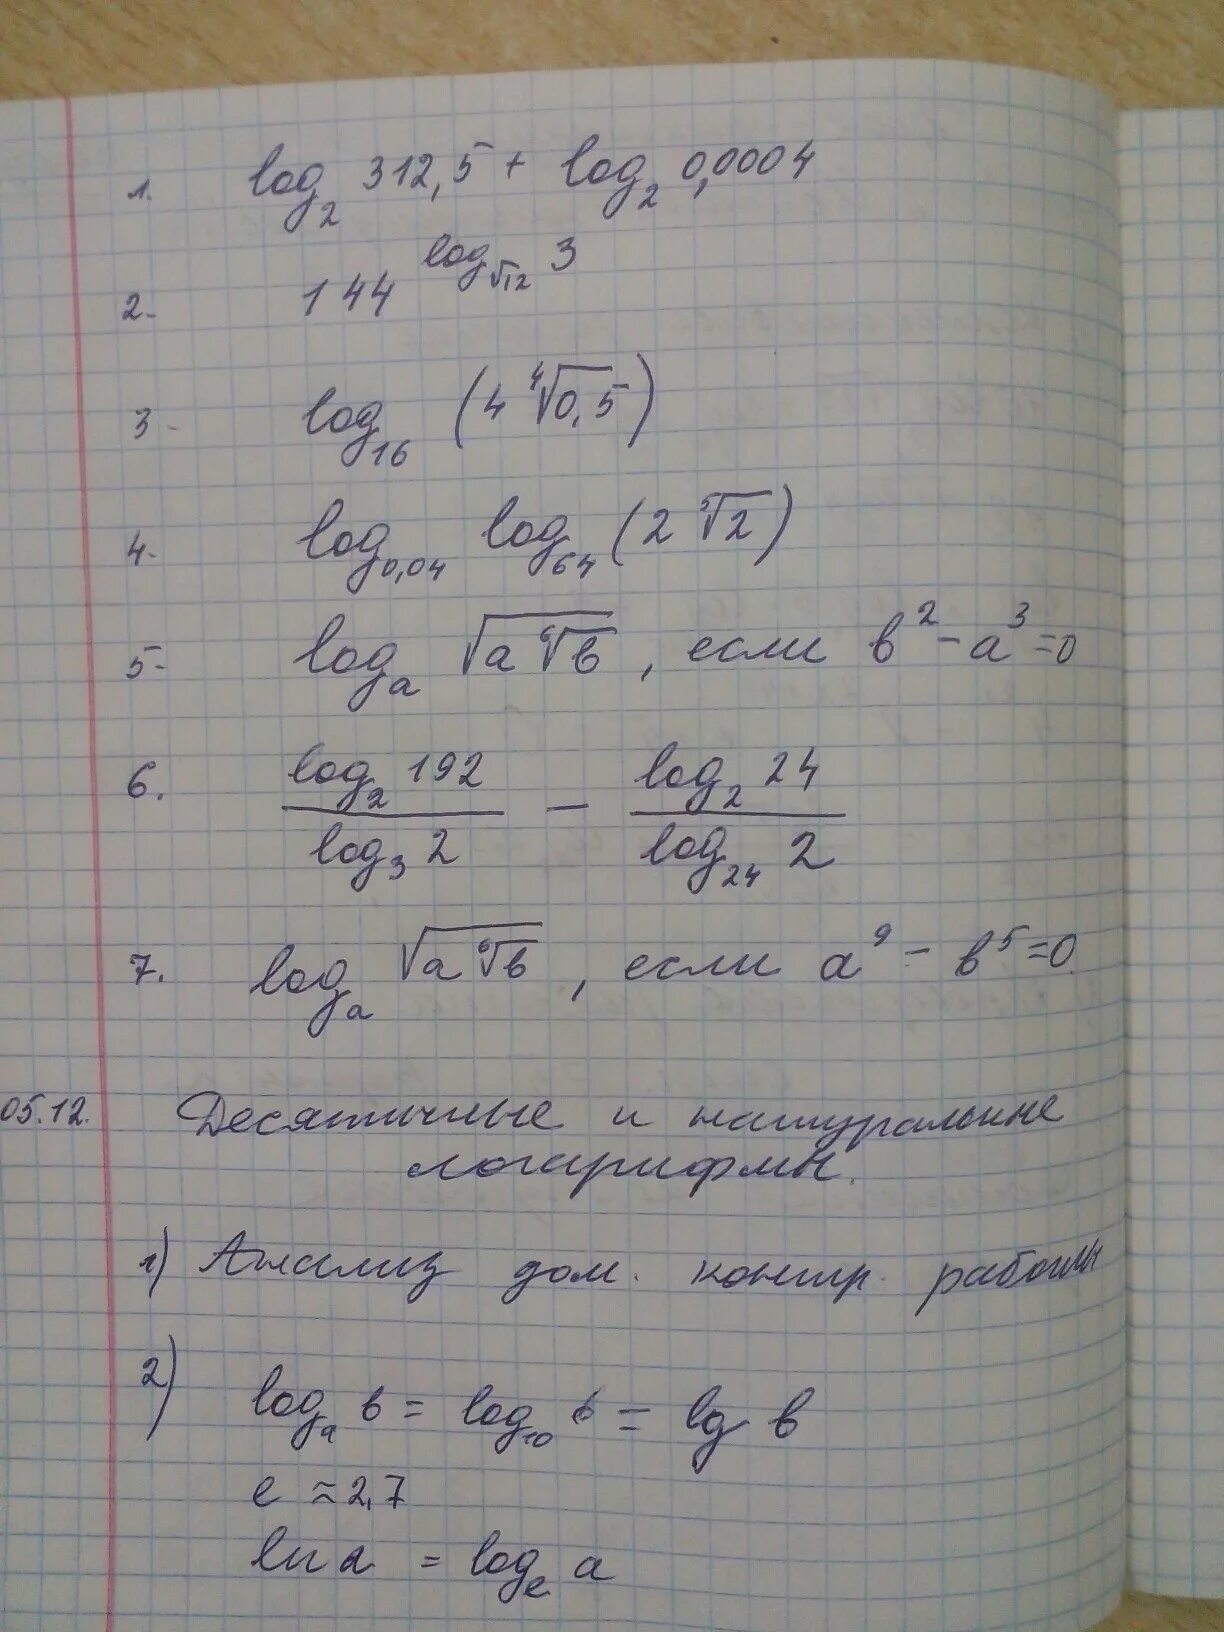 1. log₂ 312,5 + log₂ 0,0004
2. 144^(log_√12 3)
3. log₁₆ (4 ⁴√0,5)
4. log₀,₀₄ log₆₄ (2 ⁵√2)
5. logₐ √(a ⁶√b), если b² - a³ = 0
6. log₂ 192 / log₃ 2 - log₂ 24 / log₂₄ 2
7. logₐ √(a ⁶√b), если a⁹ - b⁵ = 0.
05.12. Десятичные и натуральные
логарифмы.
1) Анализ дом. контр. работы
2) logₐ b = log₁₀ b = lg b
e ≈ 2,7
ln a = logₑ a